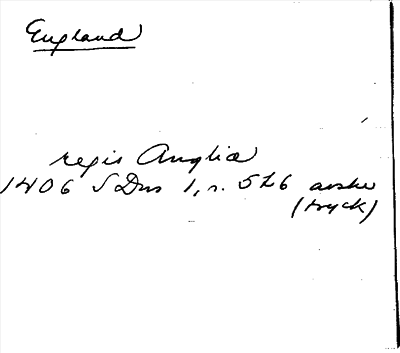 England
regis Anglie
1406 S Dns 1, n. 526 avskr
(tryck)